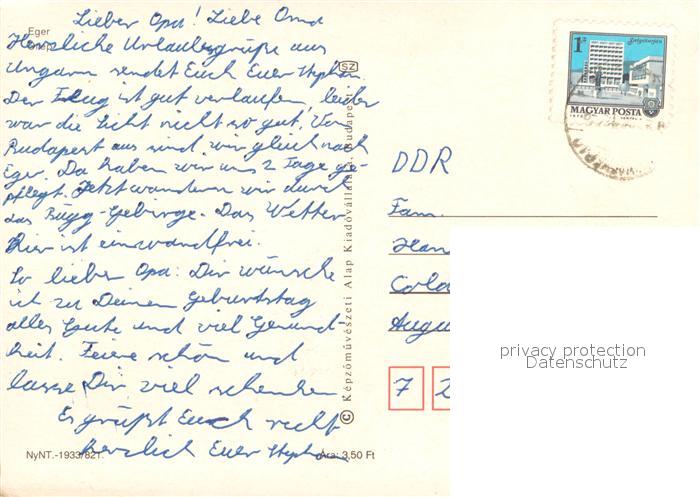 Eger
Lieber Opa! Liebe Oma
Herzliche Urlaubsgrüße aus
Ungarn sendet Euch Euer Stephan.
Der Flug ist gut verlaufen, leider
war die Sicht nicht so gut. Von
Budapest aus sind wir gleich nach
Eger. Da haben wir uns 2 Tage ge-
pflegt. Jetzt wandern wir durch
das Bügg-Gebirge. Das Wetter
hier ist einwandfrei.
So lieber Opa: Dir wünsche
ich zu Deinem Geburtstag
alles Gute und viel Gesund-
heit. Feiere schön und
lasse Dir viel schenken
Es grüßt Euch recht
herzlich Euer Stephan
NyNT.-1933/821.
Ára: 3,50 Ft
SZ
© Képzőművészeti Alap Kiadóvállalata, Budapest
1 Ft
Salgótarján
MAGYAR POSTA
DDR
Fam.
Han
Cold
Augu
7 2
privacy protection
Datenschutz